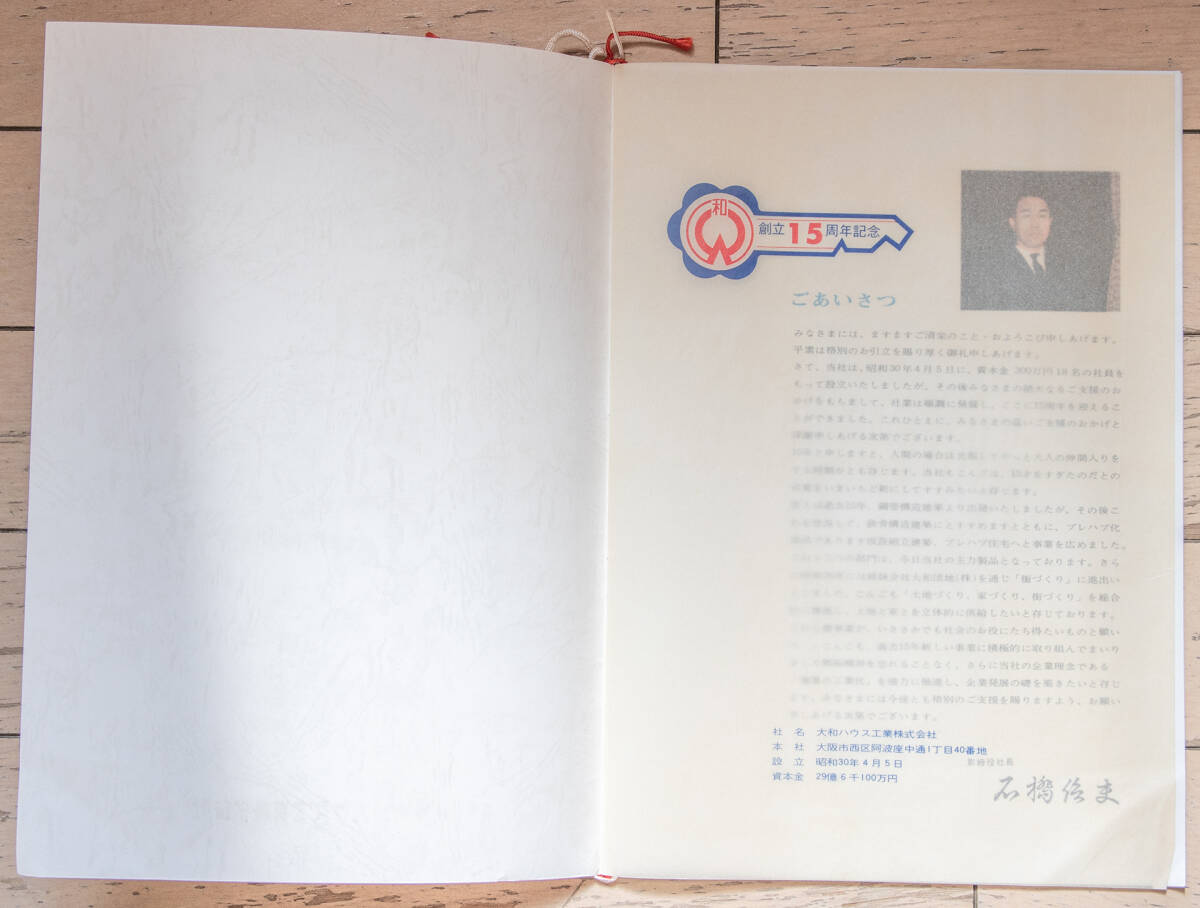 和
創立15周年記念
ごあいさつ
みなさまには、ますますご清栄のこと・およろこび申しあげます。
平素は格別のお引立を賜り厚く御礼申しあげます。
さて、当社は、昭和30年4月5日に、資本金 300万円18名の社員を
もって設立いたしましたが、その後みなさまの絶大なるご支援のお
かげをもちまして、社業は順調に発展し、ここに15周年を迎えるこ
とができました。これひとえに、みなさまの温いご支援のおかげと
感謝申しあげる次第でございます。
15年と申しますと、人間の場合は
大人の仲間入りを
する時期かとも存じます。当社もこんごは、
すぎたのだとの
にしてすすみたいと存じます。
鋼管構造建築より出発いたしましたが、その後こ
鉄骨構造建築にとすすめますとともに、プレハブ化
仮設組立建築、プレハブ住宅へと事業を広めました。
部門は、今日当社の主力製品となっております。さら
大和団地(株)を通じ「街づくり」に進出い
たしました。こんごも「土地づくり、家づくり、街づくり」を総合
土地と家とを立体的に供給したいと存じております。
いささかでも社会のお役にたち得たいものと願い
過去15年新しい事業に積極的に取り組んでまいり
を忘れることなく、さらに当社の企業理念である
を強力に推進し、企業発展の礎を築きたいと存じ
ます。みなさまには今後とも格別のご支援を賜りますよう、お願い
申しあげる次第でございます。
社 名 大和ハウス工業株式会社
本 社 大阪市西区阿波座中通1丁目40番地
設 立 昭和30年4月5日
資本金 29億6千100万円
取締役社長
石橋信夫